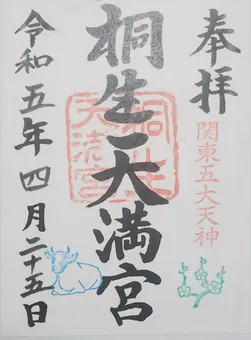 奉拝
関東五大天神
桐生天満宮
令和五年四月二十五日